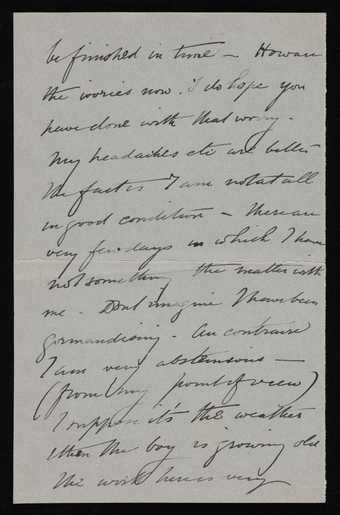 be finished in time – How are
the worries now. I do hope you
have done with that worry.
My headaches etc are better
the fact is I am not at all
in good condition – there are
very few days in which I have
not something the matter with
me. Dont imagine I have been
gormandising. Au contraire
I am very abstemious –
(from my point of view)
I suppose it's the weather
then the boy is growing old
the work here is very